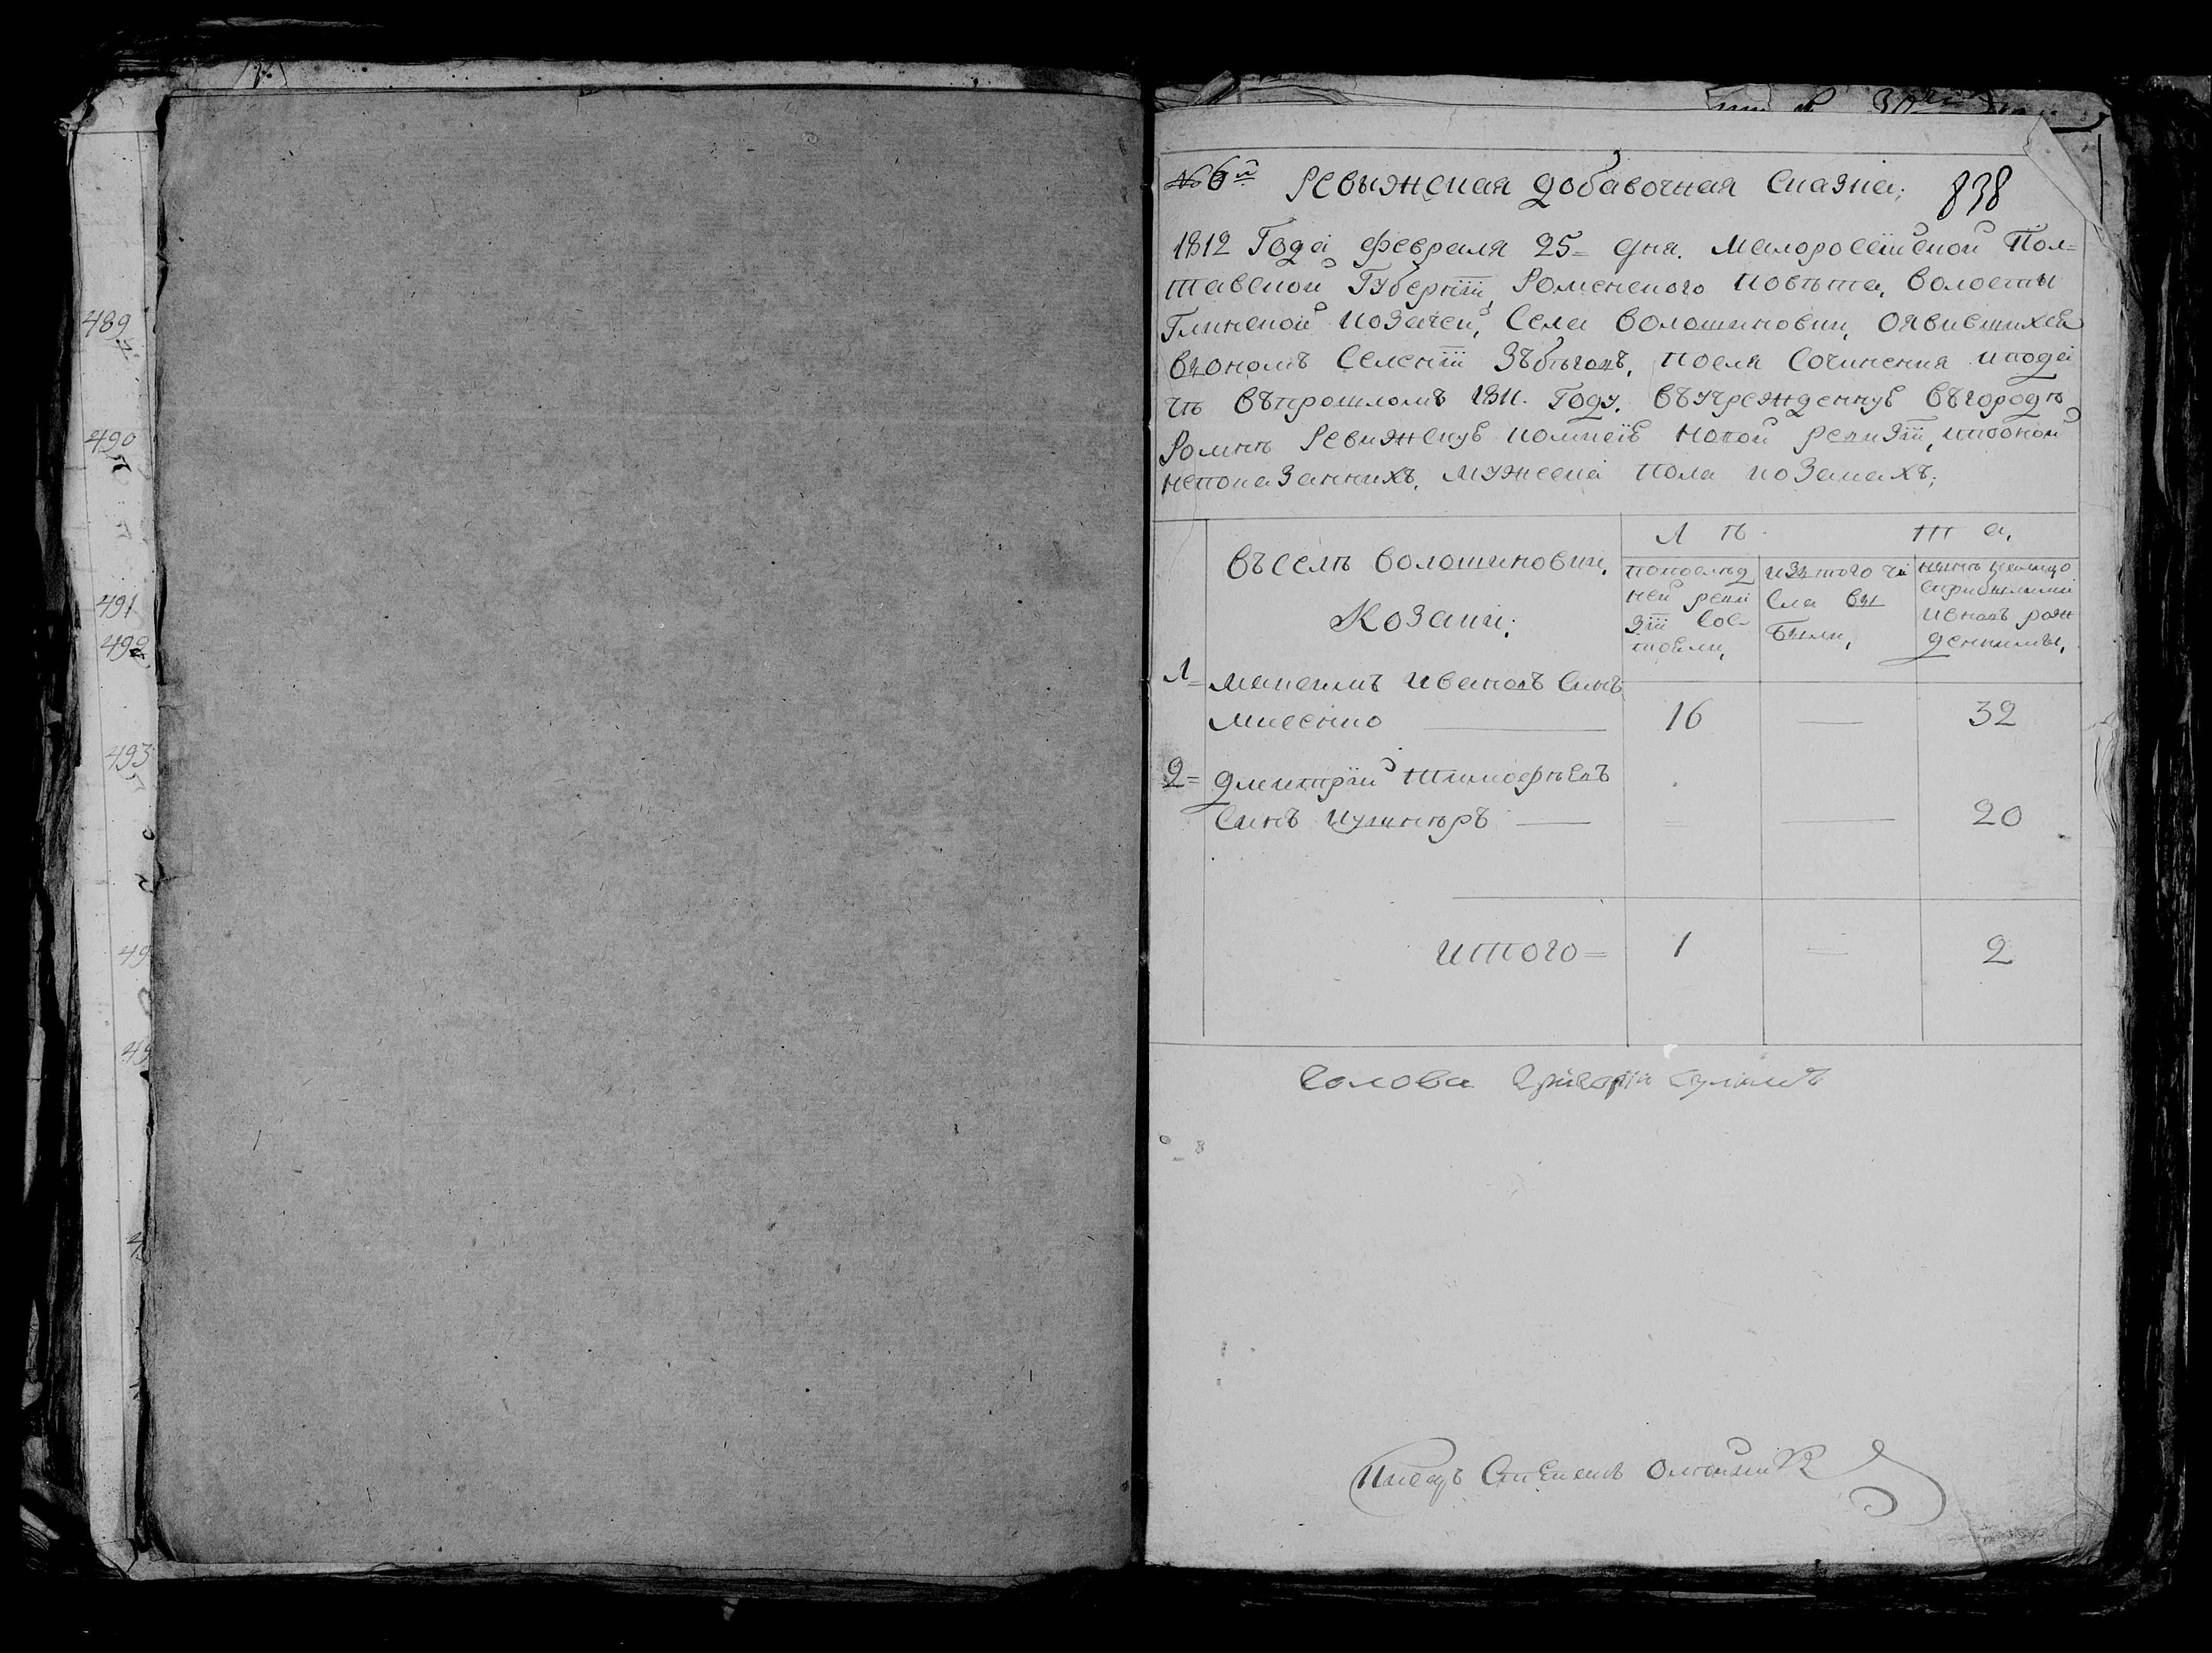 489
490
491
492
493
49
49
4
№ 6й Ревыжская добавочная сказка; 838
1812 Года февраля 25= дня. Малоросеійской Пол=
тавской Губерніи, Роменского повѣта, волосты
Глинской козачей, Села волошиновки, оявившихся
въ ономъ Селеніи зъбѣговъ, посля Сочиненія и пода
чѣ въ прошломъ 1811. Году. въ учрежденную въ городѣ
Ромнѣ Ревижскую комисію новой ревизіи, и по оной
непоказаннихъ, мужеска пола козакахъ;
въ селѣ волошиновки,
Козаки;
Л ѣ т а,
по послѣд
ней реви
зіи сос-
тояли,
изъ того чи
сла вы
были,
нынѣ налицо
съ прибылими
и вновь рож
денними,
1= Максимъ Ивановъ Синъ
Мисенко 16 — 32
2= Дмитрій Тимофѣевъ
Синъ Кушнѣръ — = — 20
итого= 1 — 2
Голова Григорій
Писарь Степанъ